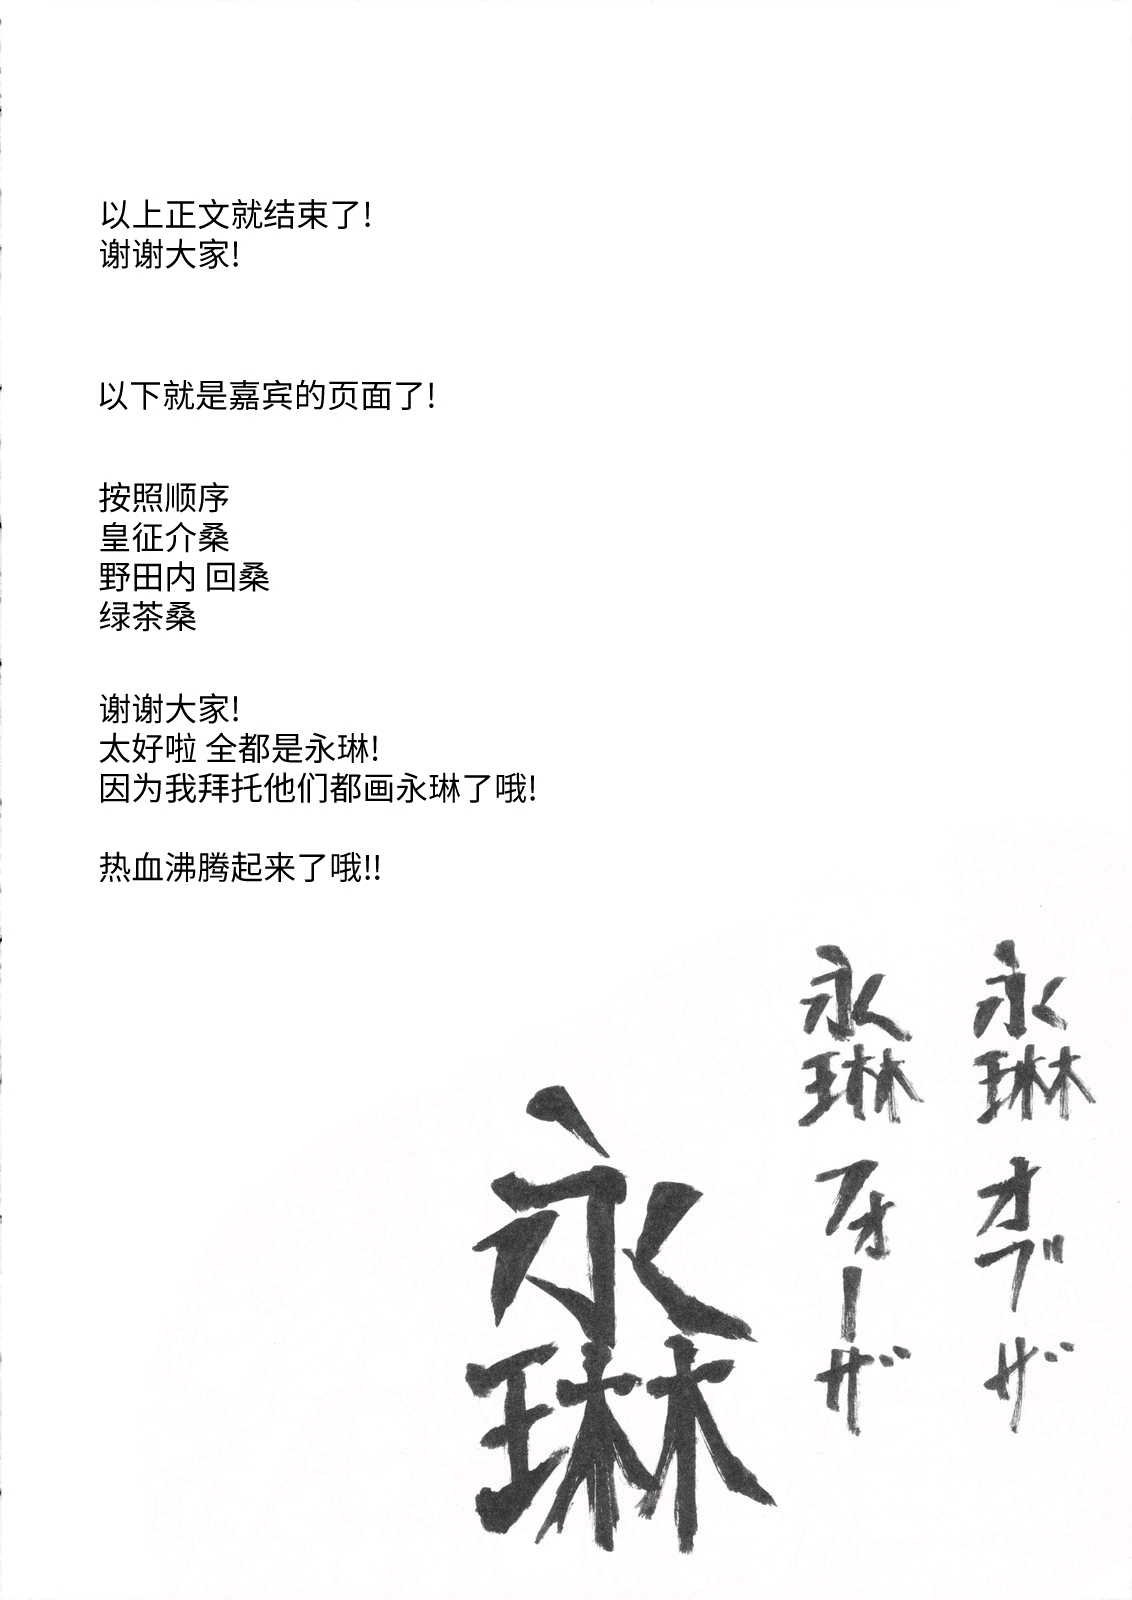 以上正文就结束了!
谢谢大家!
以下就是嘉宾的页面了!
按照顺序
皇征介桑
野田内 回桑
绿茶桑
谢谢大家!
太好啦 全都是永琳!
因为我拜托他们都画永琳了哦!
热血沸腾起来了哦!!
永琳オブザ
永琳フォーザ
永琳